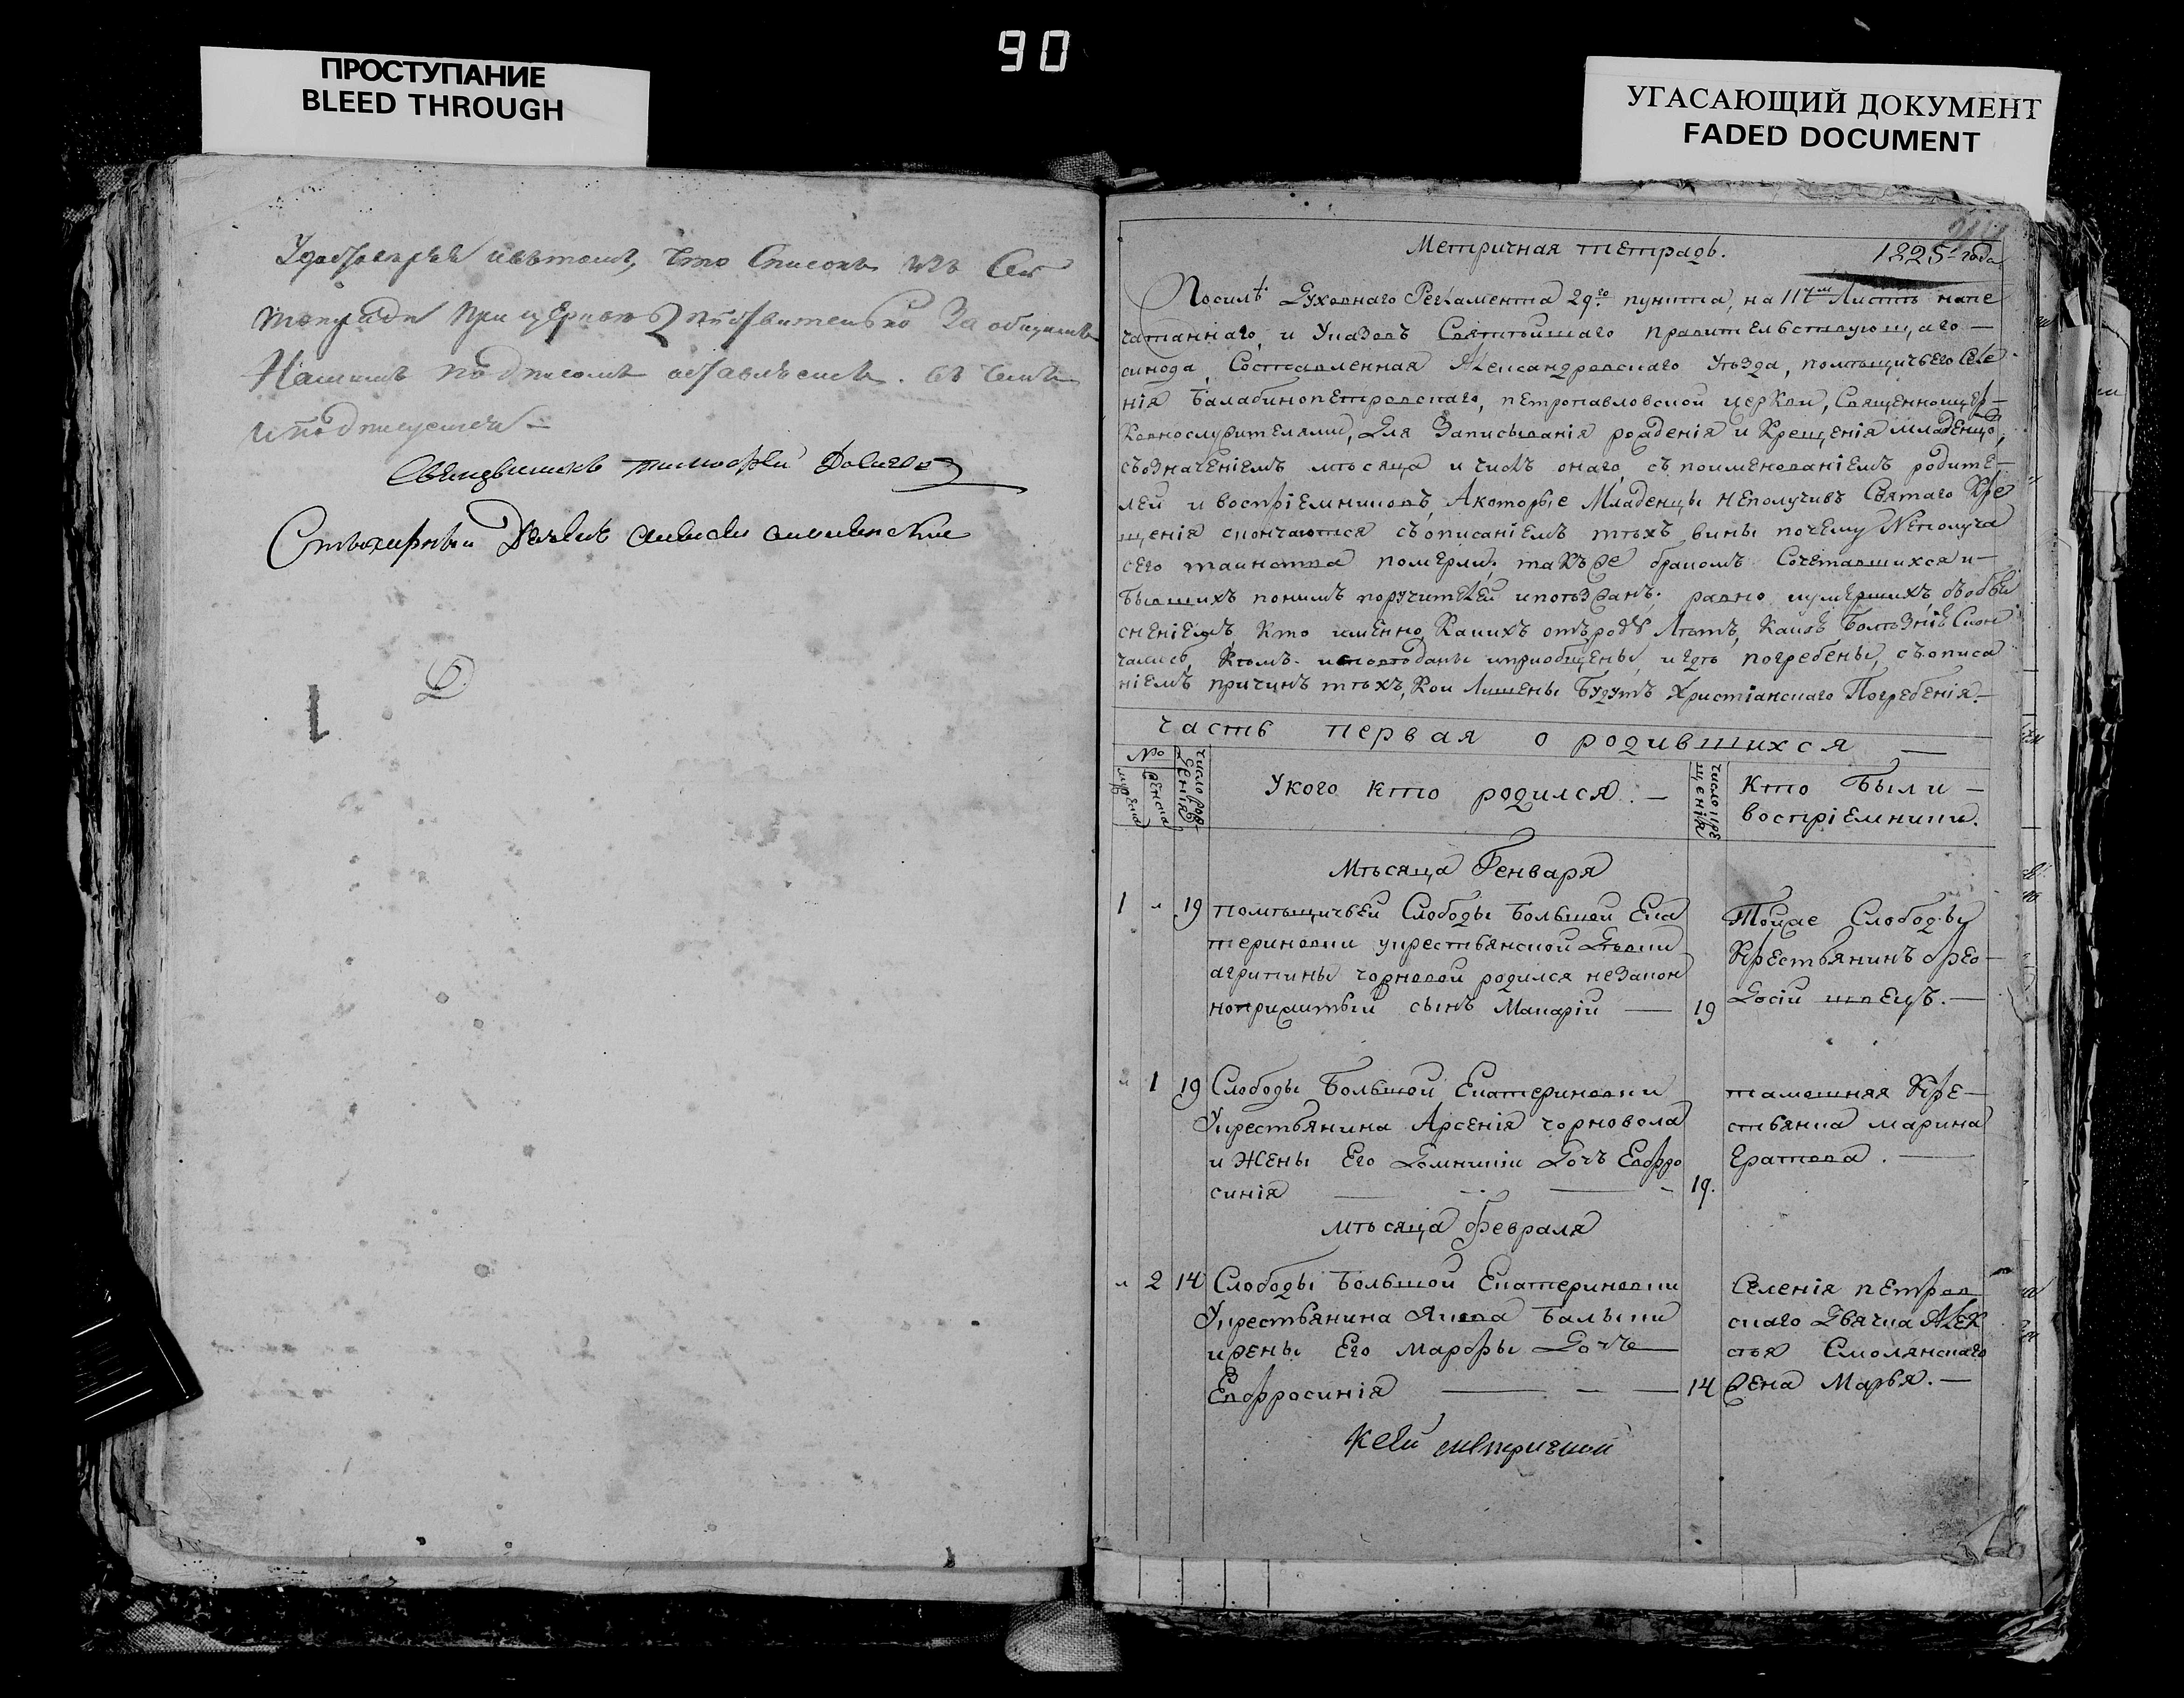 90
ПРОСТУПАНИЕ
BLEED THROUGH
УГАСАЮЩИЙ ДОКУМЕНТ
FADED DOCUMENT
что Списокъ
при церкви За общимъ
Нашимъ подписомъ въ чемъ
и подписуемся
Священникъ Тимофей
Дьячекъ
Метричная тетрадь. 1825 года
Посилѣ Духовнаго Регламента 29го пункта, на 117мъ Листѣ напе
чатаннаго, и Указовъ Святѣйшаго правительствующаго
синода, Составленная Александровскаго уѣзда, помѣщичьего селе
нія Балабинопетровскаго, петропавловской церкви, Священноцер-
ковнослужителями, Для Записыванія рожденія и Крещенія младенцовъ,
съозначеніемъ мѣсяца и числъ онаго, съ поименованіемъ родите-
лей и воспріемниковъ, Акоторые Младенцы неполучивъ Святаго Кре
щенія скончаются съописаніемъ тѣхъ вины почему Неполуча
сего таинства померли, такъже бракомъ Сочетавшихся и
бывшихъ понимъ поручителей ипоѣзжанъ; равно иумершихъ объобъя
сненіемъ, Кто именно, Какихъ отъроду Лѣтъ, Какою Болѣзнію Скон
чались, Кѣмъ исповѣданы иприобщены, игдѣ погребены, съописа
ніемъ причинъ тѣхъ, Кои Лишены Будутъ Христіанскаго Погребенія.
часть первая о родившихся
№
мужеска
женска
число рож-
денія
Укого кто родился.
число кре
щенія
Кто Были
воспріемники.
Мѣсяца Генваря
1 19 помѣщичьей Слободы Большой Ека
териновки укрестьянской Дѣвки
агрипины чорновой родился незакон
ноприжитый сынъ Макарій 19
Тойже Слободы
Крестьянинъ Фео-
досій швецъ.
1 19 Слободы Большой Екатериновки
Укрестьянина Арсенія чорновола
и Жены Его Домникіи Дочъ Евфро
синія 19.
тамошняя Кре-
стьянка марина
Ератова.
мѣсяца февраля
2 14 Слободы Большой Екатериновки
Укрестьянина Якова
ижены Его марфы Дочь
Евфросинія 14
Селенія петров
скаго Дьячка Алек
сѣя Смолянскаго
Жена Марья.
Ксей метричной